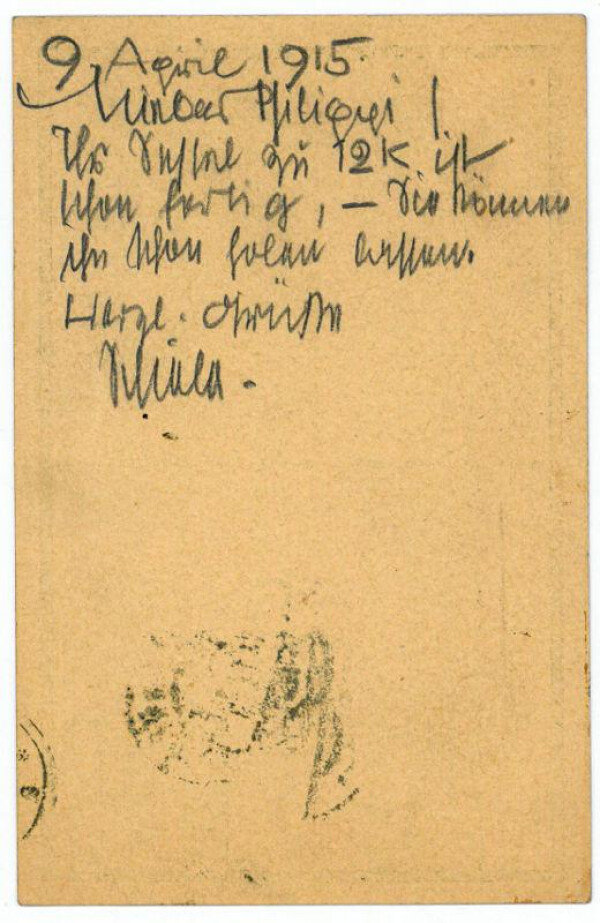 9. April 1915.
Lieber Philippi!
Ihr Sessel zu 12K ist
schon fertig, – Sie können
ihn schon holen lassen.
Herzl. Grüße
Schiele.